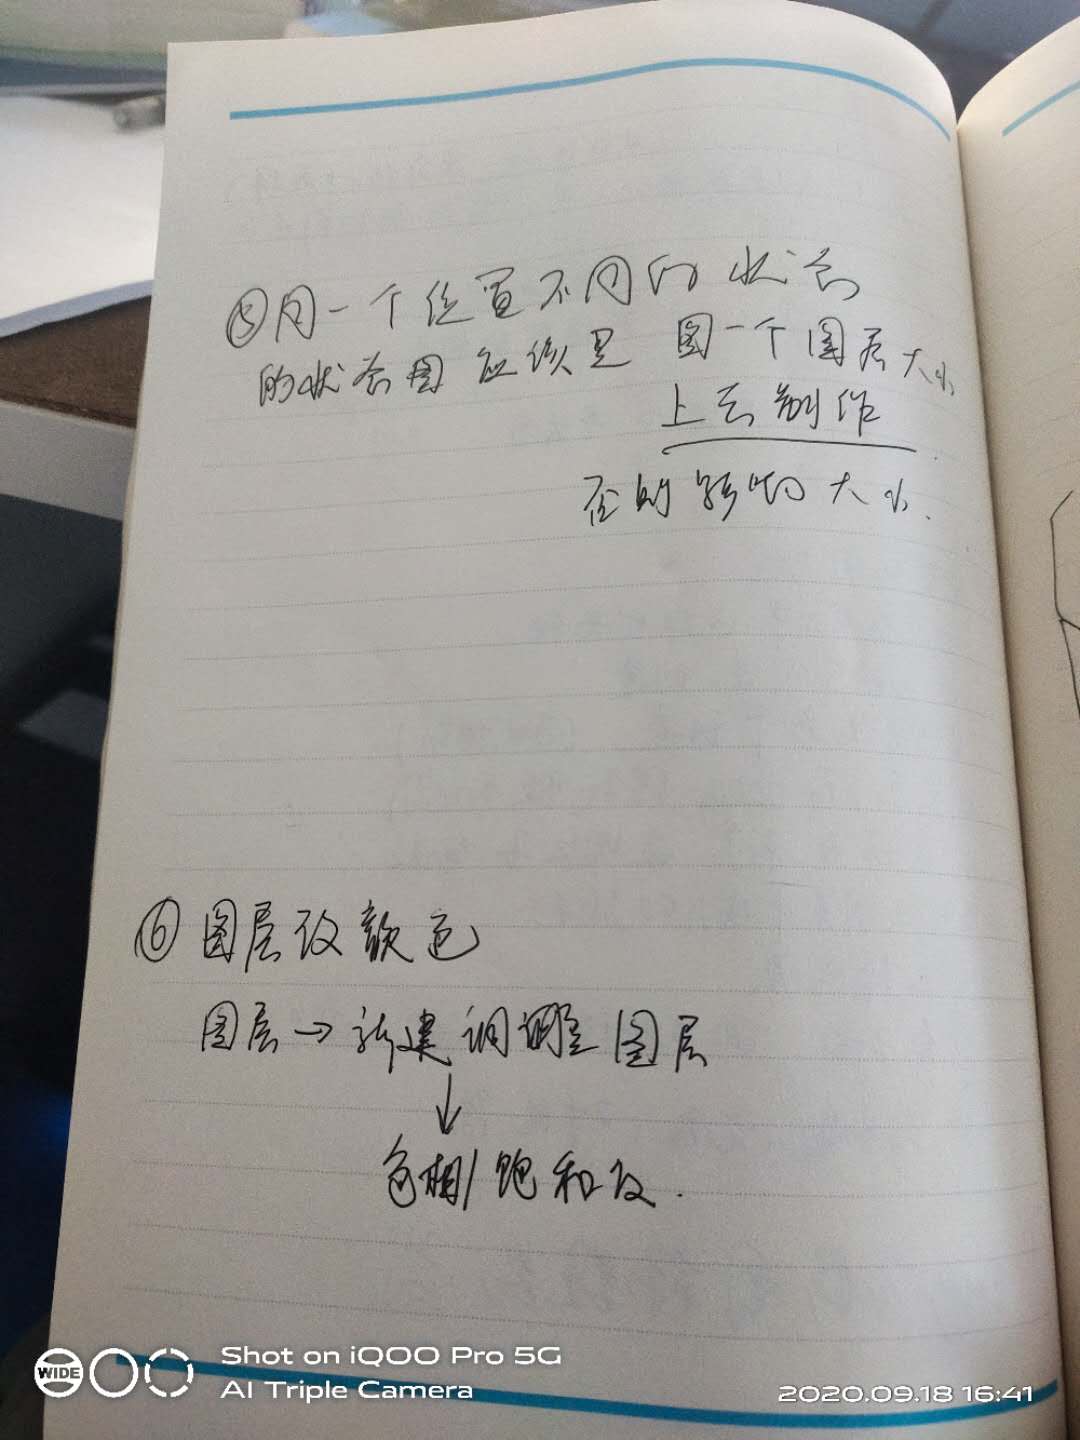 ⑤同一个位置不同的状态
的状态图应该是 图一个图层大小
上去制作
否则影响大小.
⑥ 图层改颜色
图层→新建调调整图层
↓
色相/饱和度.
WIDE
Shot on iQOO Pro 5G
AI Triple Camera
2020.09.18 16:41